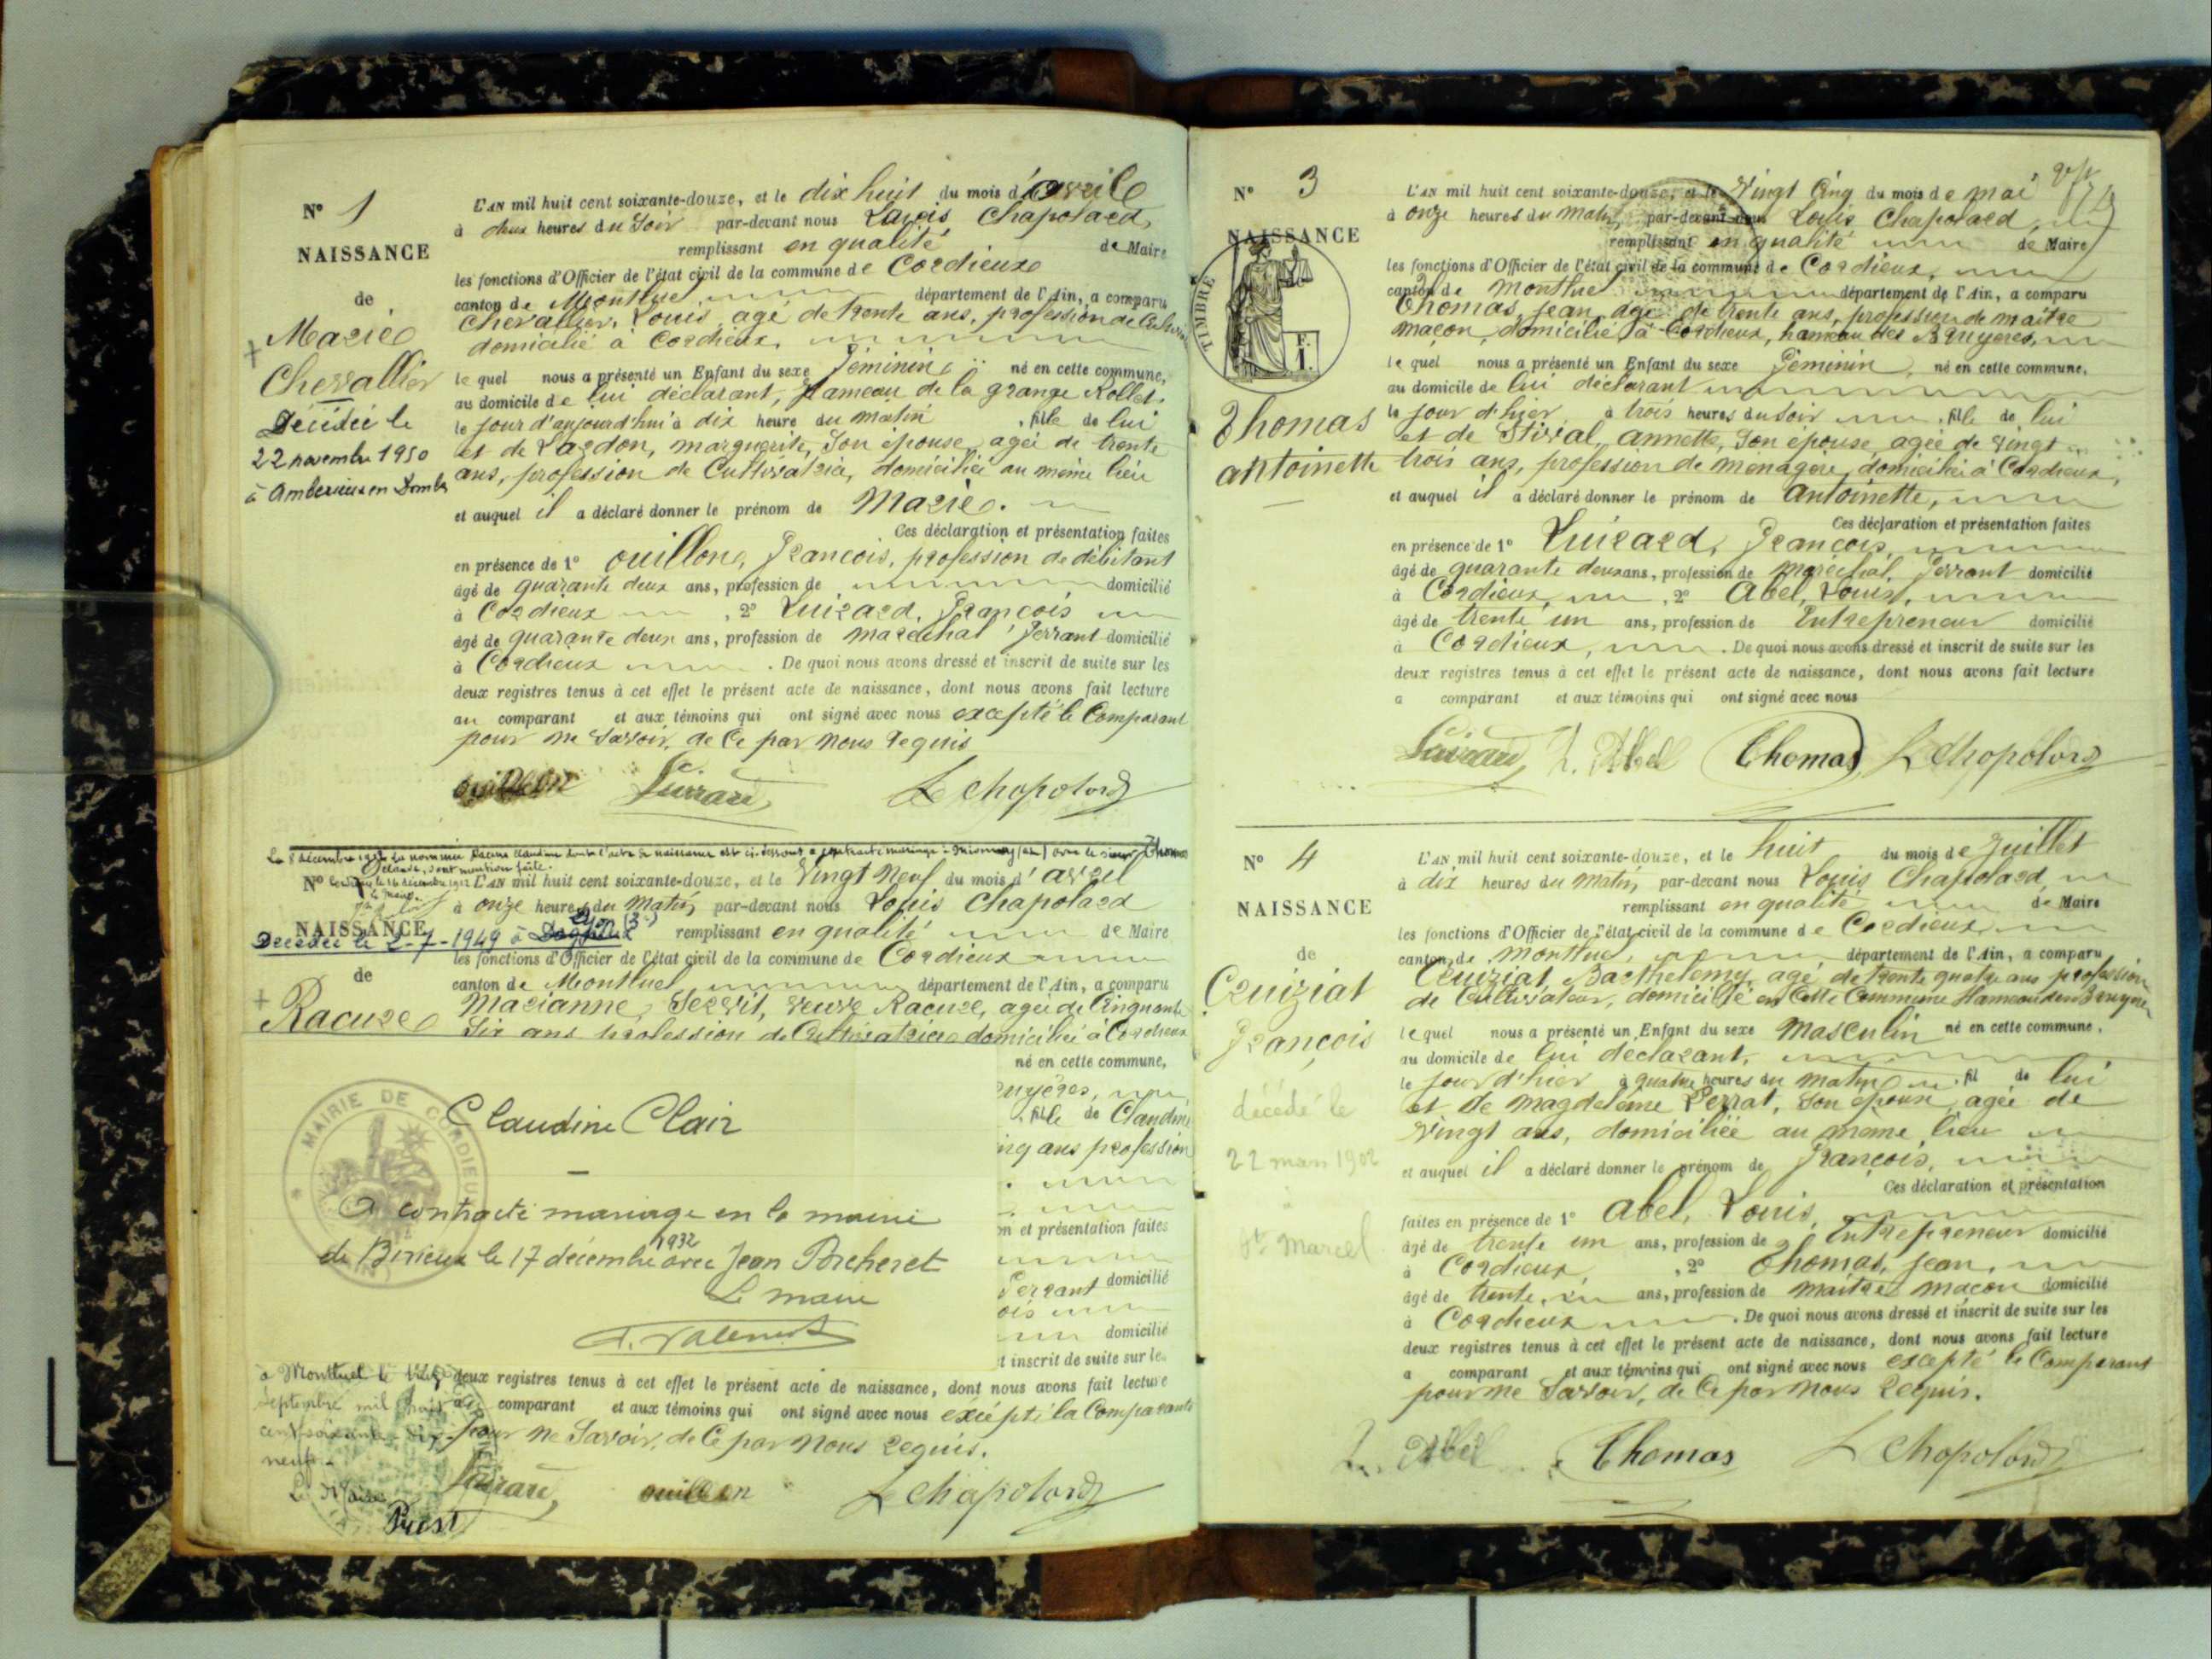 N° 1
NAISSANCE
de
Marie
Chevallier
Décédée le
22 novembre 1950
à Amberieux en Dombes
L'AN mil huit cent soixante-douze, et le dix huit du mois d'avril
à deux heures du Soir par-devant nous Louis Chapolard,
remplissant en qualité de Maire
les fonctions d'Officier de l'état civil de la commune de Cordieux
canton de Montluel département de l'Ain, a comparu
Chevallier, Louis, agé de trente ans, profession de
domicilié à Cordieux,
le quel nous a présenté un Enfant du sexe Féminin né en cette commune,
au domicile de lui déclarant, Hameau de la grange Rollet,
le jour d'aujourd'hui à dix heure du matin , fille de lui
et de Lardon, marguerite, Son épouse, agée de trente
ans, profession de Cultivatrice, domiciliée au même lieu
et auquel il a déclaré donner le prénom de Marie.
Ces déclaration et présentation faites
en présence de 1° ouillon, François, profession de débitant
âgé de quarante deux ans, profession de domicilié
à Cordieux , 2° Luizard, François
âgé de quarante deux ans, profession de marechal ferrant domicilié
à Cordieux . De quoi nous avons dressé et inscrit de suite sur les
deux registres tenus à cet effet le présent acte de naissance, dont nous avons fait lecture
au comparant et aux témoins qui ont signé avec nous excepté le Comparant
pour ne Savoir, de Ce par Nous Requis
ouillon L Chapolard
N°
NAISSANCE
Décédée le 2-7-1949 à
de
Racuze
L'AN mil huit cent soixante-douze, et le Vingt Neuf du mois d'avril
à onze heures du Matin, par-devant nous Louis Chapolard
remplissant en qualité de Maire
les fonctions d'Officier de l'état civil de la commune de Cordieux
canton de Montluel département de l'Ain, a comparu
Marianne, veuve Racuze, agée de Cinquante
Six ans profession de Cultivatrice domiciliée à Cordieux
né en cette commune,
Claudine Clair
A contracté mariage en la mairie
de Birieux le 17 décembre 1932 avec Jean Porcheret
Le maire
MAIRIE DE CORDIEUX
fille de Claudine
ans profession
et présentation faites
domicilié
domicilié
inscrit de suite sur les
à Montluel le
septembre mil
neuf.
Le Maire
deux registres tenus à cet effet le présent acte de naissance, dont nous avons fait lecture
comparant et aux témoins qui ont signé avec nous excépté la Comparante
pour ne Savoir, de Ce par Nous Requis.
ouillon L Chapolard
N° 3
NAISSANCE
TIMBRE
F. 1.
Thomas
antoinette
L'AN mil huit cent soixante-douze, et le Vingt Cinq du mois de mai
à onze heures du Matin, par-devant nous Louis Chapolard,
remplissant en qualité de Maire
les fonctions d'Officier de l'état civil de la commune de Cordieux,
canton de Montluel département de l'Ain, a comparu
Thomas, Jean, agé de trente ans, profession de maitre
maçon, domicilié à Cordieux, hameau des Bruyeres,
le quel nous a présenté un Enfant du sexe Féminin, né en cette commune,
au domicile de lui déclarant
le jour d'hier à trois heures du Soir , fille de lui
et de Stival, annette, Son epouse, agée de vingt
trois ans, profession de ménagère, domiciliée à Cordieux,
et auquel il a déclaré donner le prénom de antoinette,
Ces déclaration et présentation faites
en présence de 1° Luizard, François,
âgé de quarante deux ans, profession de maréchal, ferrant domicilié
à Cordieux, , 2° Abel, Louis,
âgé de trente un ans, profession de Entrepreneur domicilié
à Cordieux, . De quoi nous avons dressé et inscrit de suite sur les
deux registres tenus à cet effet le présent acte de naissance, dont nous avons fait lecture
a comparant et aux témoins qui ont signé avec nous
L. Abel Thomas L Chapolard
N° 4
NAISSANCE
de
Cruiziat
François
décédé le
22 mars 1902
à
St Marcel
L'AN mil huit cent soixante-douze, et le huit du mois de Juillet
à dix heures du Matin, par-devant nous Louis Chapolard
remplissant en qualité de Maire
les fonctions d'Officier de l'état civil de la commune de Cordieux
canton de Montluel, département de l'Ain, a comparu
Cruiziat, Barthelemy, agé de trente quatre ans profession
de Cultivateur, domicilié en Cette Commune Hameau des Bruyere
le quel nous a présenté un Enfant du sexe Masculin né en cette commune,
au domicile de lui déclarant,
le jour d'hier à quatre heures du matin , fil de lui
et de Magdeleine Perrat, Son épouse, agée de
Vingt ans, domiciliée au meme lieu
et auquel il a déclaré donner le prénom de François,
Ces déclaration et présentation
faites en présence de 1° Abel, Louis,
âgé de trente un ans, profession de Entrepreneur domicilié
à Cordieux, , 2° Thomas, Jean,
âgé de trente, ans, profession de maitre maçon domicilié
à Cordieux . De quoi nous avons dressé et inscrit de suite sur les
deux registres tenus à cet effet le présent acte de naissance, dont nous avons fait lecture
a comparant et aux témoins qui ont signé avec nous excepté le Comparant
pour ne Savoir, de Ce par Nous Requis.
L. Abel Thomas L Chapolard